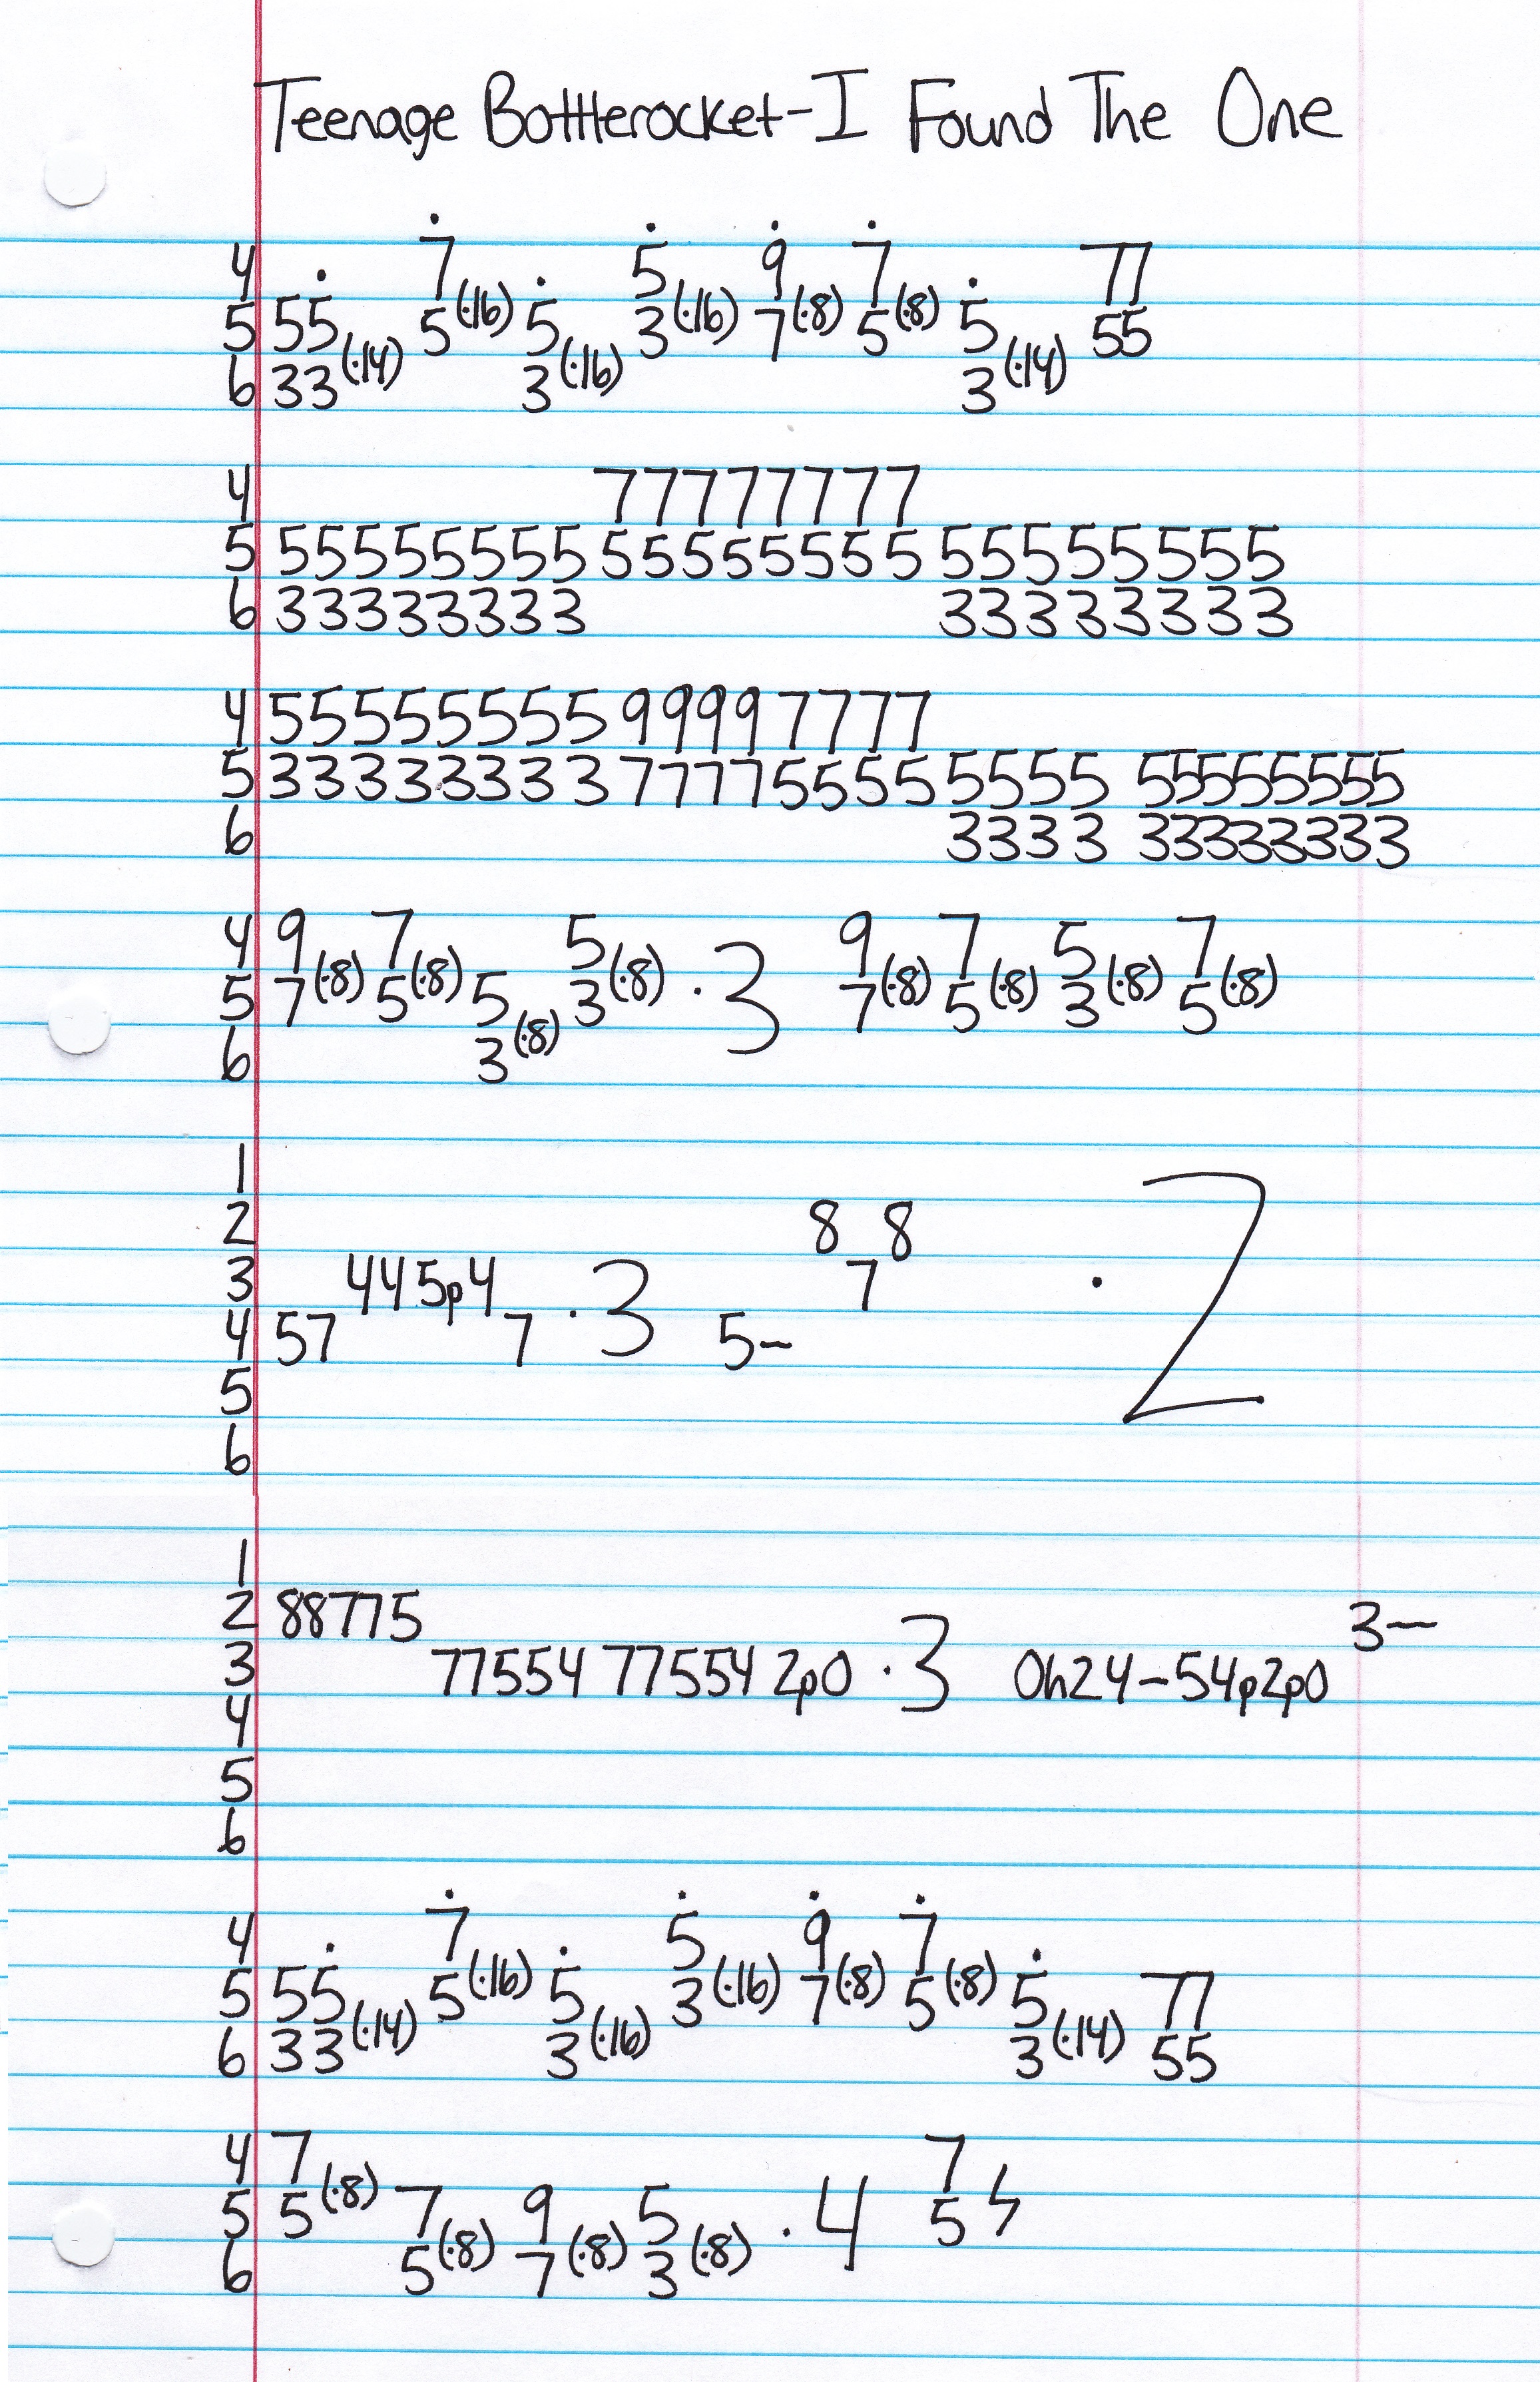 Teenage Bottlerocket-I Found The One
4 7̇ 5̇ 9̇ 7̇ 77
5 55̇ 5(·16) 5̇ 3(·16) 7(·8) 5(·8) 5̇ 55
6 33(·14) 3(·16) 3(·14)
4 77777777
5 55555555 55555555 55555555
6 33333333 33333333
4 55555555599997777
5 33333333377775555 5555 55555555
6 3333 33333333
4 9 7 5 9 7 5 7
5 7(·8) 5(·8) 5 3(·8) ·3 7(·8) 5(·8) 3(·8) 5(·8)
6 3(·8)
1
2 8 8
3 445p4 7
4 57 7 ·3 5– ·2
5
6
1
2 88775 3–
3 77554 77554 2p0 ·3 0h24–54p2p0
4
5
6
4 7̇ 5̇ 9̇ 7̇
5 55̇ 5(·16) 5̇ 3(·16) 7(·8) 5(·8) 5̇ 77
6 33(·14) 3(·16) 3(·14) 55
4 7 7
5 5(·8) 7 9 5 ·4 5
6 5(·8) 7(·8) 3(·8)